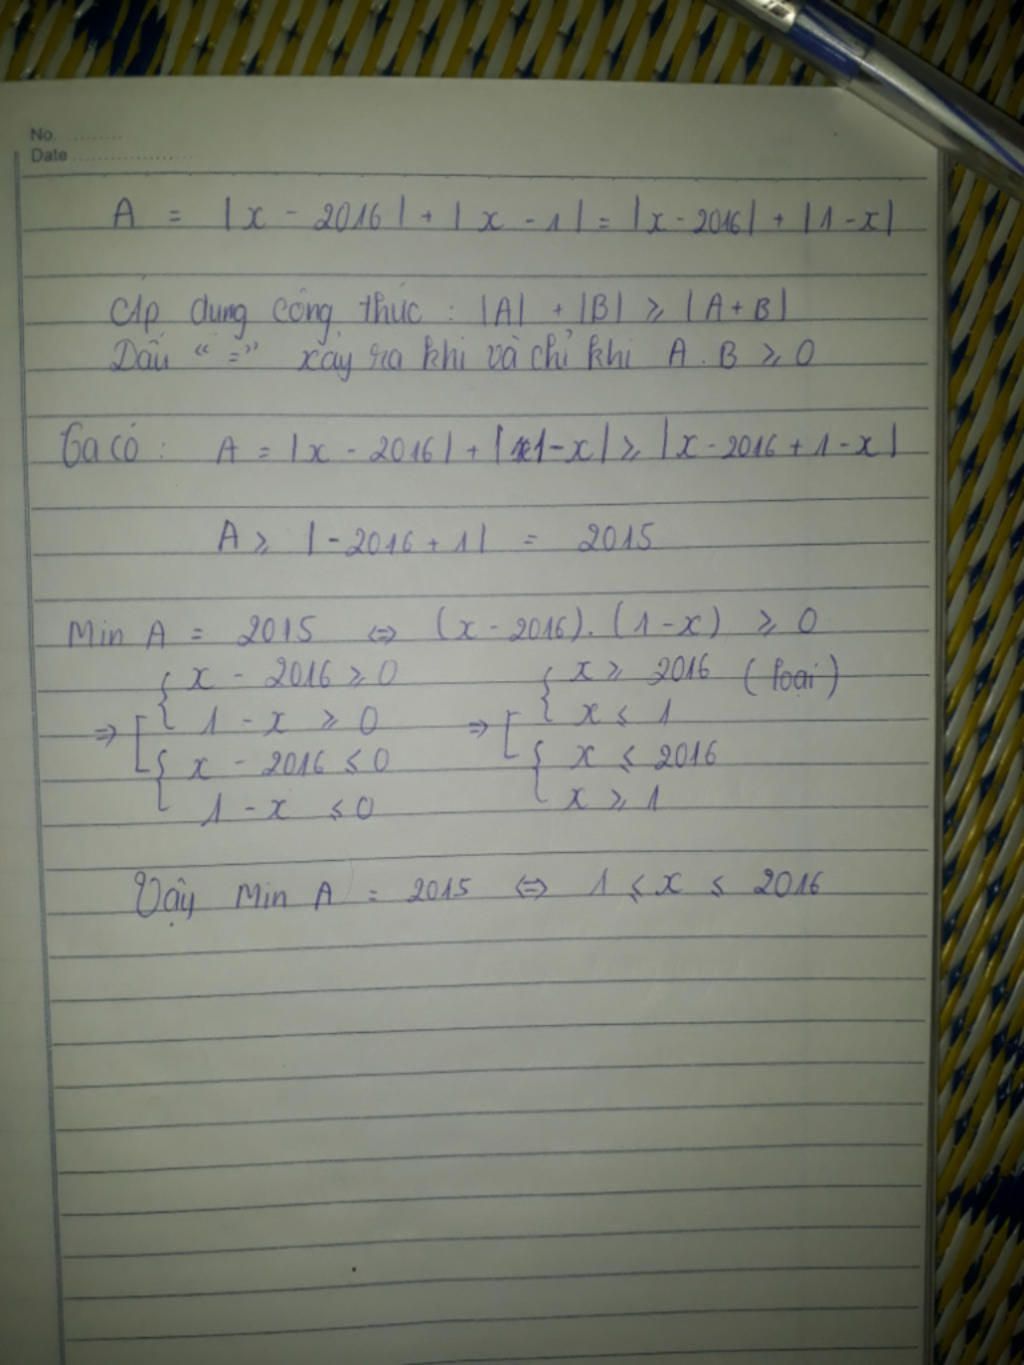 No. ..........
Date ......................
A = |x - 2016| + |x - 1| = |x - 2016| + |1 - x|
Áp dụng công thức : |A| + |B| ⩾ |A + B|
Dấu "=" xảy ra khi và chỉ khi A . B ⩾ 0
Ta có : A = |x - 2016| + |1 - x| ⩾ |x - 2016 + 1 - x|
A ⩾ |-2016 + 1| = 2015
Min A = 2015 ⇔ (x - 2016) . (1 - x) ⩾ 0
{ x - 2016 ⩾ 0 { x ⩾ 2016 (loại)
⇒ [ 1 - x ⩾ 0 ⇒ [ x ⩽ 1
{ x - 2016 ⩽ 0 { x ⩽ 2016
1 - x ⩽ 0 x ⩾ 1
Vậy Min A = 2015 ⇔ 1 ⩽ x ⩽ 2016